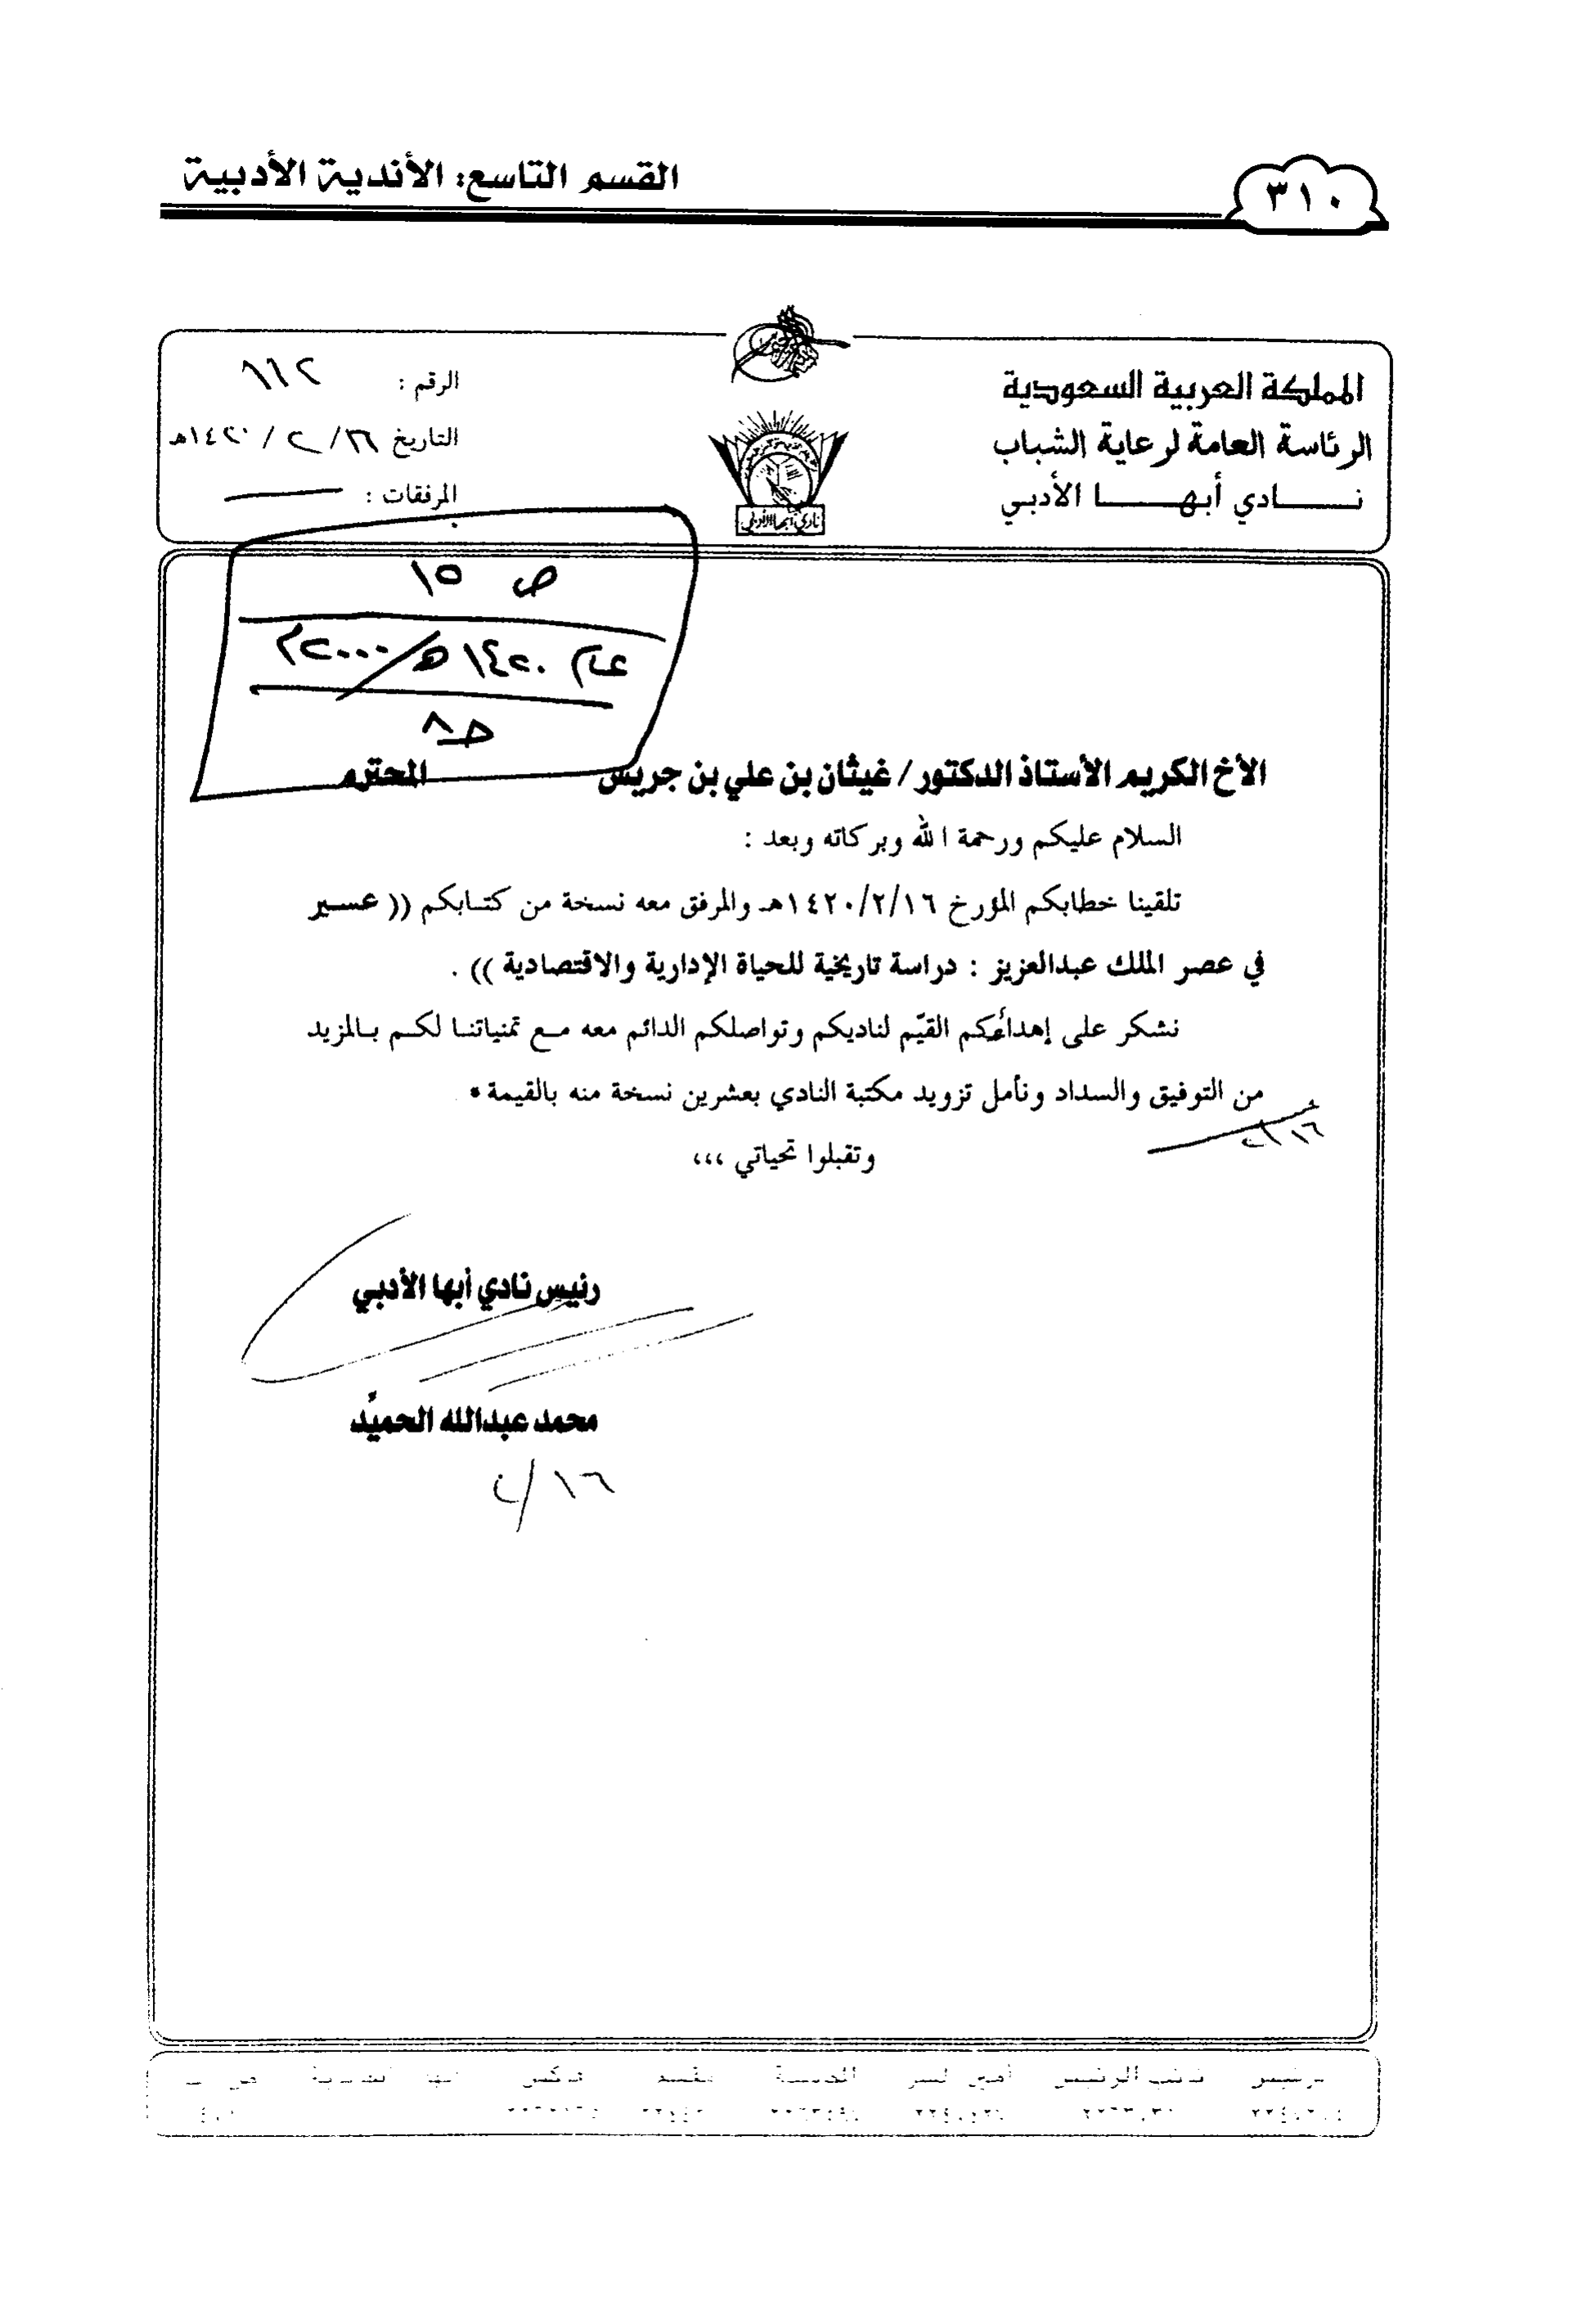 القسم التاسع: الأندية الأدبية
٣١٠
المملكة العربية السعودية
الرئاسة العامة لرعاية الشباب
نـــادي أبهـــا الأدبي
الرقم :
التاريخ / ٢ / ١٤٢٠هـ
المرفقات :
نادي أبها الأدبي
ص ١٥
عام ١٤٢٠هـ/٢٠٠٠م
حـ٨
الأخ الكريم الأستاذ الدكتور/ غيثان بن علي بن جريس المحترم
السلام عليكم ورحمة الله وبركاته وبعد :
تلقينا خطابكم المؤرخ ١٤٢٠/٢/١٦هـ والمرفق معه نسخة من كتـابكم (( عسـير
في عصر الملك عبدالعزيز : دراسة تاريخية للحياة الإدارية والاقتصادية )) .
نشكر على إهدائكم القيّم لناديكم وتواصلكم الدائم معه مـع تمنياتنـا لكـم بـالمزيد
من التوفيق والسداد ونأمل تزويد مكتبة النادي بعشرين نسخة منه بالقيمة •
وتقبلوا تحياتي ،،،
رئيس نادي أبها الأدبي
محمد عبدالله الحميّد
٢/١٦
نائب الرئيس أمين السر فاكس